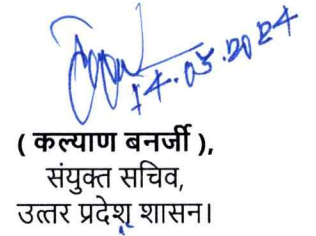 14.05.2024
( कल्याण बनर्जी ),
संयुक्त सचिव,
उत्तर प्रदेश शासन।